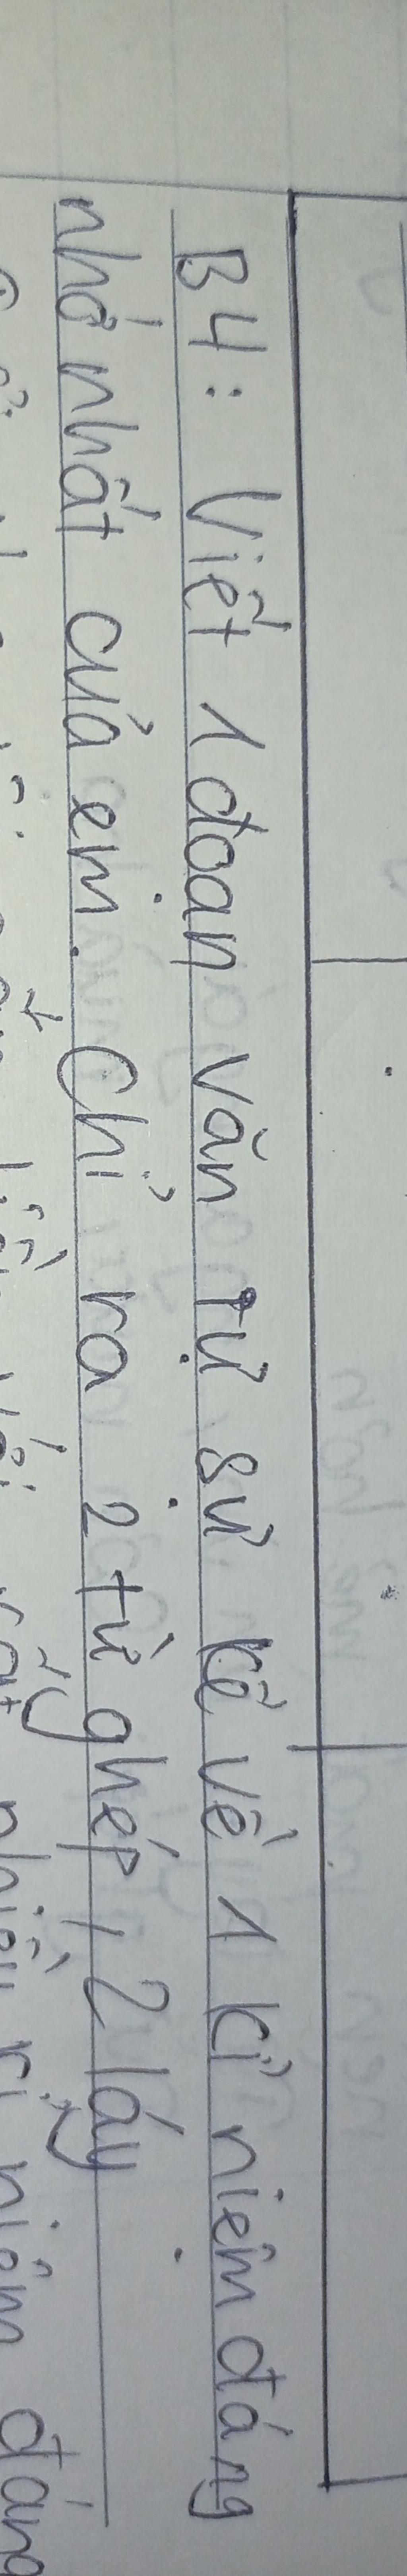 B4: Viết 1 đoạn văn tự sự kể về 1 kỉ niệm đáng
nhớ nhất của em. Chỉ ra 2 từ ghép, 2 láy
nhiều kỉ niệm đáng